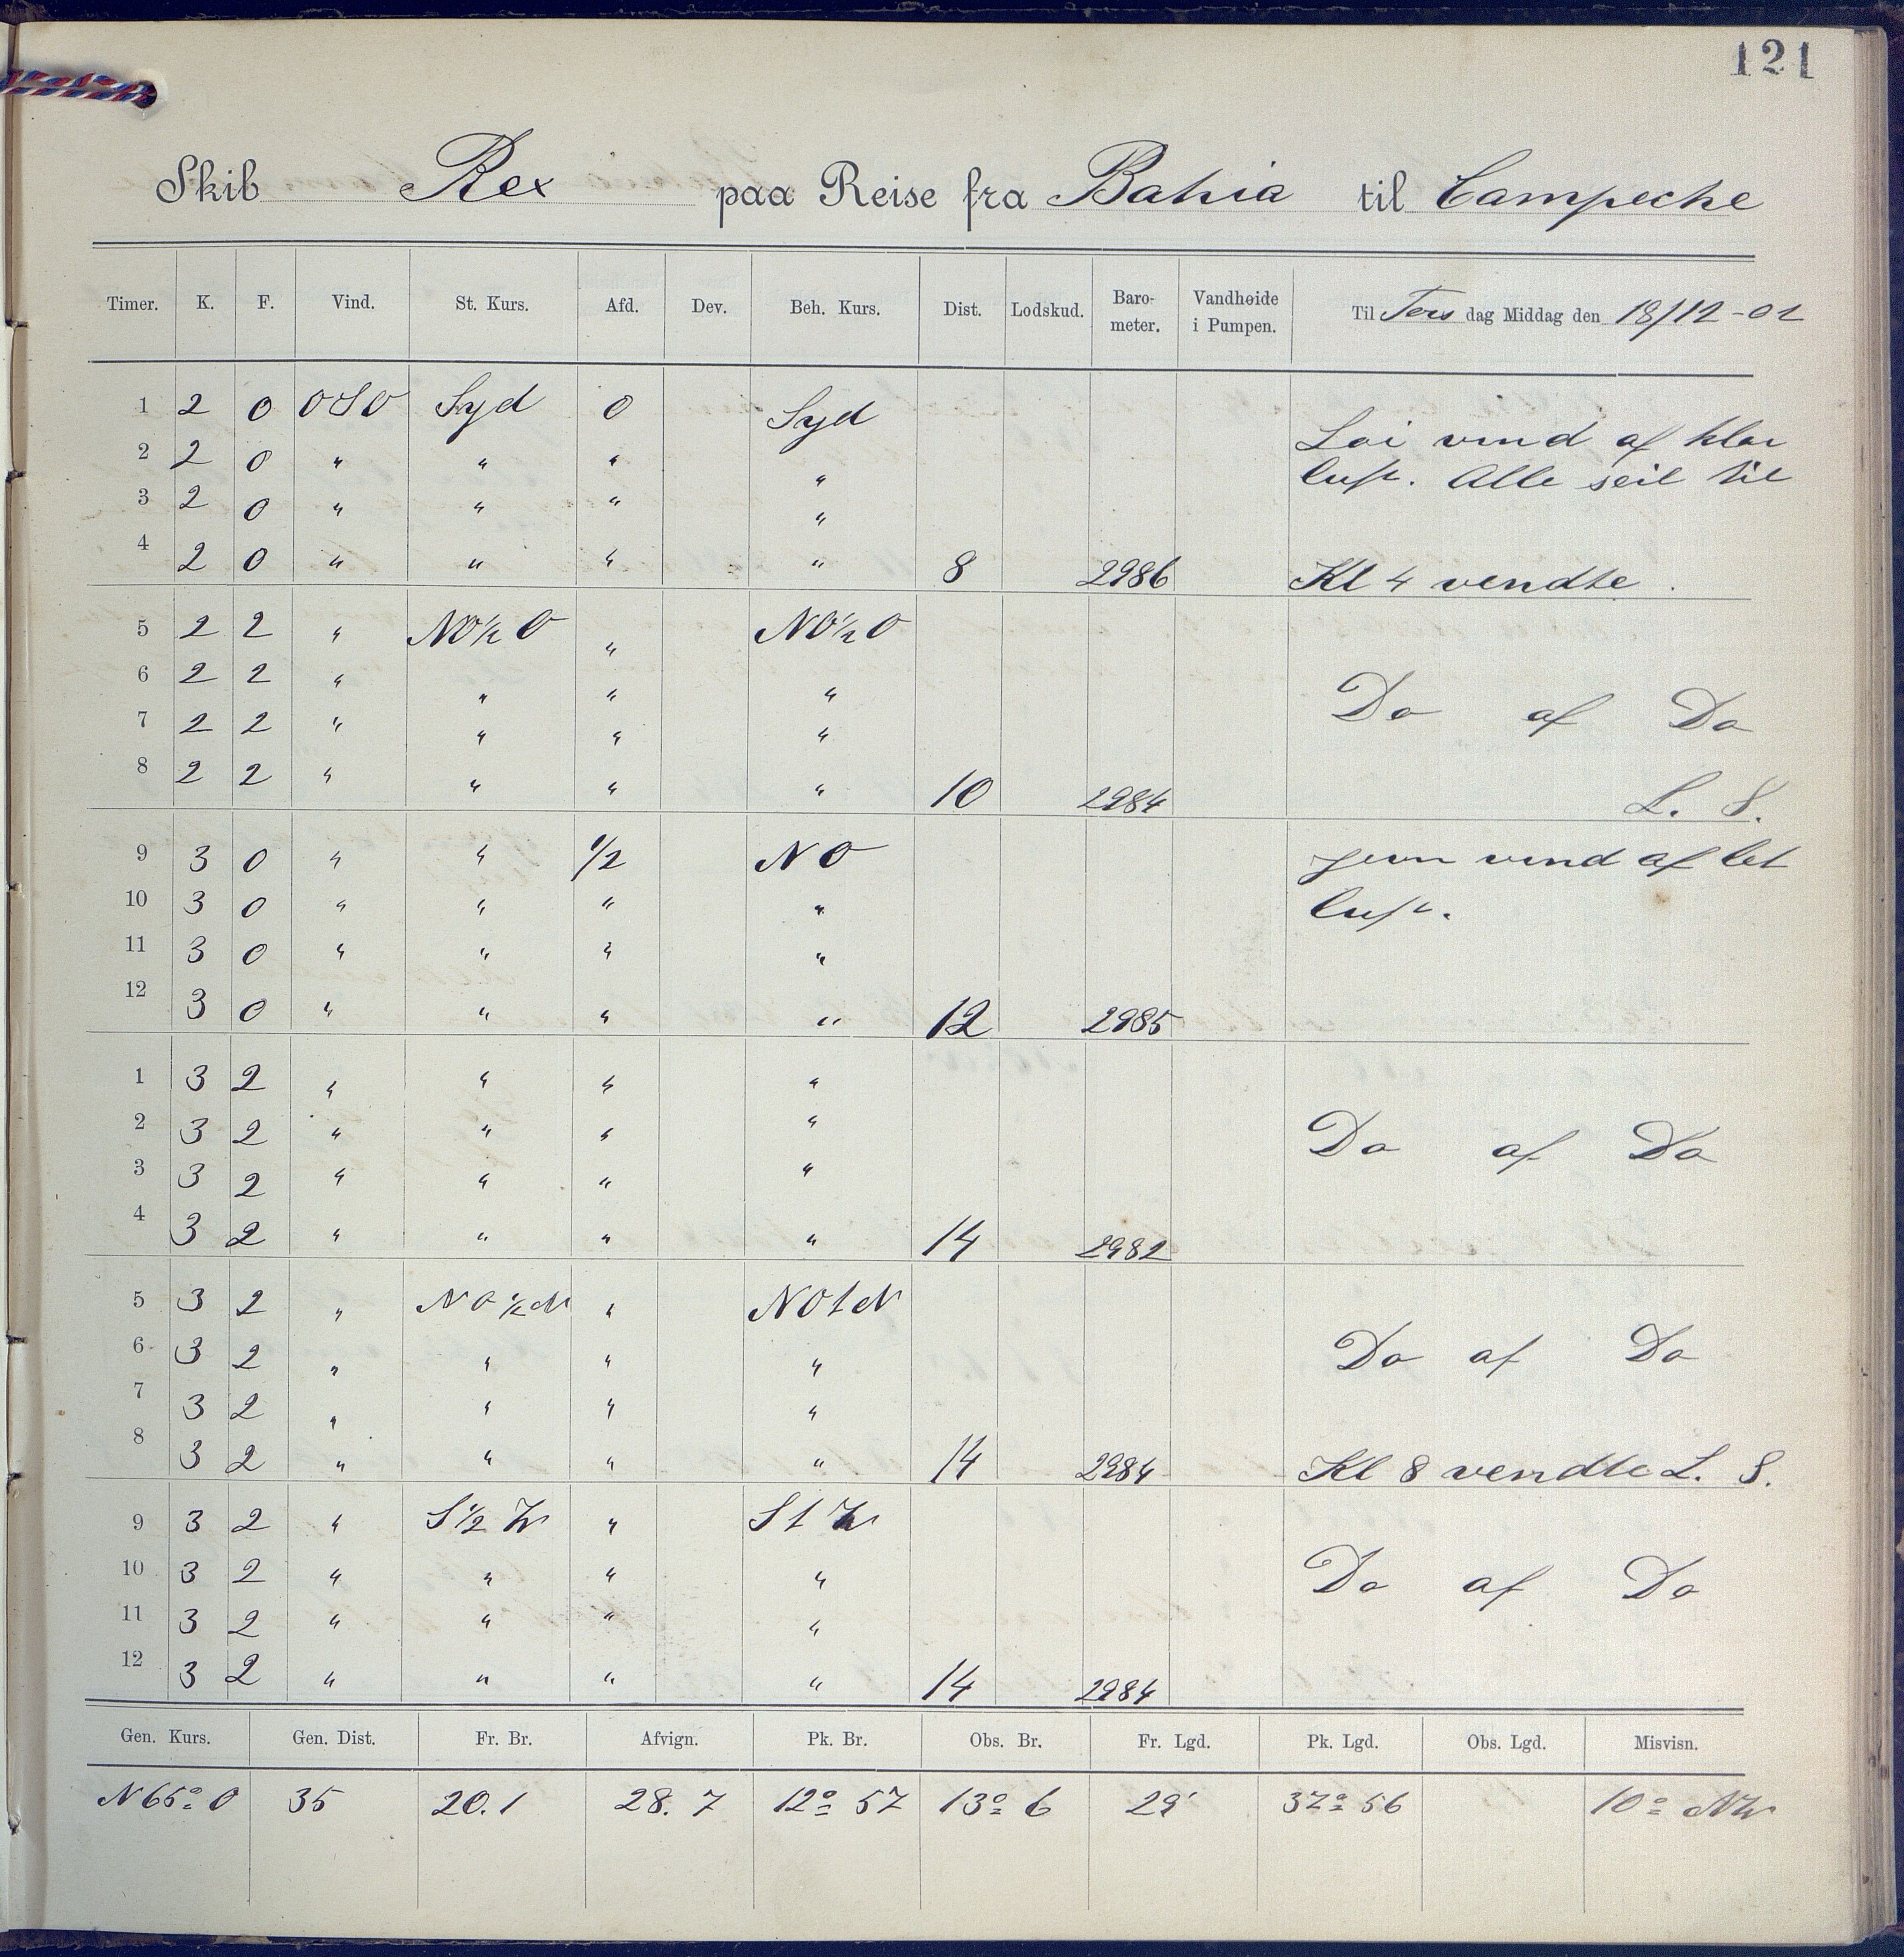 121
Skib Rex paa Reise fra Bahia til Campeche
Timer. K. F. Vind. St. Kurs. Afd. Dev. Beh. Kurs. Dist. Lodskud. Baro-meter. Vandhøide i Pumpen. Til Tors dag Middag den 18/12-02
1 2 0 OSO Syd 0 Syd
Loi vind af klar
2 2 0 " " " "
luft. Alle seil til
3 2 0 " " " "
4 2 0 " " " " 8 2986 Kl 4 vendte.
5 2 2 " NO½O " NO½O
6 2 2 " " " "
Do af Do
7 2 2 " " " "
8 2 2 " " " " 10 2984 L. S.
9 3 0 " " 1/2 NO jevn vind af let
10 3 0 " " " " luft.
11 3 0 " " " "
12 3 0 " " " " 12 2985
1 3 2 " " " "
2 3 2 " " " " Do af Do
3 3 2 " " " "
4 3 2 " " " " 14 2982
5 3 2 " NO½N " NOtN
6 3 2 " " " " Do af Do
7 3 2 " " " "
8 3 2 " " " " 14 2984 Kl 8 vendte L. S.
9 3 2 " S½W " StW
10 3 2 " " " " Do af Do
11 3 2 " " " "
12 3 2 " " " " 14 2984
Gen. Kurs. Gen. Dist. Fr. Br. Afvign. Pk. Br. Obs. Br. Fr. Lgd. Pk. Lgd. Obs. Lgd. Misvisn.
N65°O 35 20.1 28.7 12° 57 13° 6 29' 37° 56 10° NW